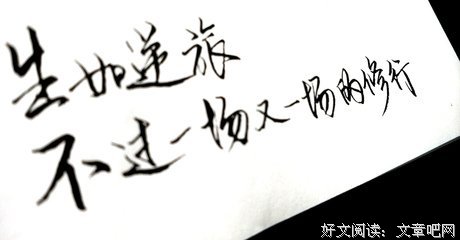 生如逆旅
不过一场又一场的修行
好文阅读：文章吧网